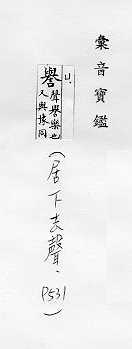 彙音寶鑑
ㄐ
譽 聲譽樂也
又與豫同
(居下去聲、
P531)